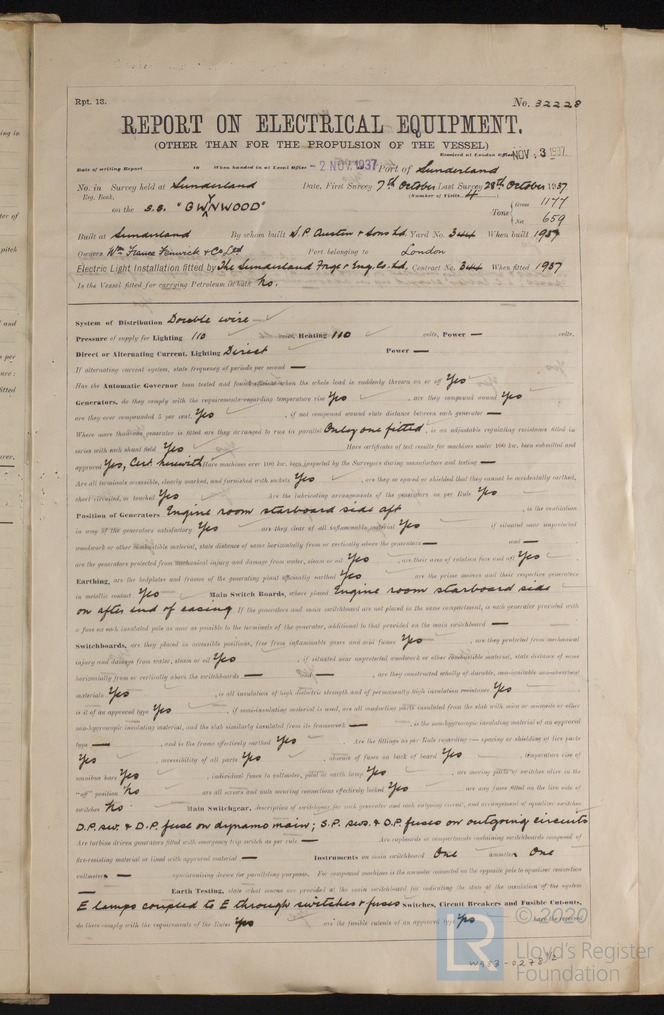 Rpt. 13.
No. 32228
REPORT ON ELECTRICAL EQUIPMENT.
(OTHER THAN FOR THE PROPULSION OF THE VESSEL)
Received at London Office NOV. 3 1937.
Date of writing Report 19 When handed in at Local Office - 2 NOV. 1937 Port of Sunderland
No. in Survey held at Sunderland Date, First Survey 7th October Last Survey 28th October 1937
Reg. Book. (Number of Visits 4)
on the S.S. "GWYNWOOD" Tons Gross 1177
Net 659
Built at Sunderland By whom built S.P. Austin & Sons Ld. Yard No. 344 When built 1937
Owners Wm France Fenwick & Co, Ltd Port belonging to London
Electric Light Installation fitted by The Sunderland Forge & Eng. Co. Ltd. Contract No. 344 When fitted 1937
Is the Vessel fitted for carrying Petroleum in bulk No.
System of Distribution Double wire
Pressure of supply for Lighting 110 volts, Heating 110 volts, Power — volts.
Direct or Alternating Current, Lighting Direct Power —
If alternating current system, state frequency of periods per second —
Has the Automatic Governor been tested and found efficient when the whole load is suddenly thrown on or off Yes
Generators, do they comply with the requirements regarding temperature rise Yes, are they compound wound Yes
are they over compounded 5 per cent. Yes, if not compound wound state distance between each generator —
Where more than one generator is fitted are they arranged to run in parallel Only one fitted, is an adjustable regulating resistance fitted in
series with each shunt field Yes Have certificates of test results for machines under 100 kw. been submitted and
approved Yes, Cert. herewith Have machines over 100 kw. been inspected by the Surveyors during manufacture and testing —
Are all terminals accessible, clearly marked, and furnished with sockets Yes, are they so spaced or shielded that they cannot be accidentally earthed,
short circuited, or touched Yes Are the lubricating arrangements of the generators as per Rule Yes
Position of Generators Engine room starboard side aft, is the ventilation
in way of the generators satisfactory Yes are they clear of all inflammable material Yes if situated near unprotected
woodwork or other combustible material, state distance of same horizontally from or vertically above the generators — and —
are the generators protected from mechanical injury and damage from water, steam or oil Yes, are their axes of rotation fore and aft Yes
Earthing, are the bedplates and frames of the generating plant efficiently earthed Yes are the prime movers and their respective generators
in metallic contact Yes Main Switch Boards, where placed Engine room starboard side
on after end of casing If the generators and main switchboard are not placed in the same compartment, is each generator provided with
a fuse on each insulated pole as near as possible to the terminals of the generator, additional to that provided on the main switchboard —
Switchboards, are they placed in accessible positions, free from inflammable gases and acid fumes Yes, are they protected from mechanical
injury and damage from water, steam or oil Yes, if situated near unprotected woodwork or other combustible material, state distance of same
horizontally from or vertically above the switchboards — and —, are they constructed wholly of durable, non-ignitable non-absorbent
materials Yes, is all insulation of high dielectric strength and of permanently high insulation resistance Yes
is it of an approved type Yes, if semi-insulating material is used, are all conducting parts insulated from the slab with mica or micanite or other
non-hygroscopic insulating material, and the slab similarly insulated from its framework —, is the non-hygroscopic insulating material of an approved
type —, and is the frame effectively earthed Yes Are the fittings as per Rule regarding:— spacing or shielding of live parts
Yes, accessibility of all parts Yes, absence of fuses on back of board Yes, temperature rise of
omnibus bars Yes, individual fuses to voltmeter, pilot or earth lamp Yes, are moving parts of switches alive in the
"off" position No are all screws and nuts securing connections effectively locked Yes are any fuses fitted on the live side of
switches No Main Switchgear, description of switchgear for each generator and each outgoing circuit, and arrangement of equaliser switches
D.P. sw. & D.P. fuse on dynamo main; S.P. sws. & D.P. fuses on outgoing circuits
Are turbine driven generators fitted with emergency trip switch as per rule — Are cupboards or compartments containing switchboards composed of
fire-resisting material or lined with approved material — Instruments on main switchboard One ammeter One
voltmeter — synchronising device for paralleling purposes. For compound machines is the ammeter connected on the opposite pole to equaliser connection
— Earth Testing, state what means are provided at the main switchboard for indicating the state of the insulation of the system
E lamps coupled to E through switches & fuses Switches, Circuit Breakers and Fusible Cut-outs,
do these comply with the requirements of the Rules Yes are the fusible cutouts of an approved type Yes
© 2020
Lloyd's Register
Foundation
LR
W983-0278 1/2